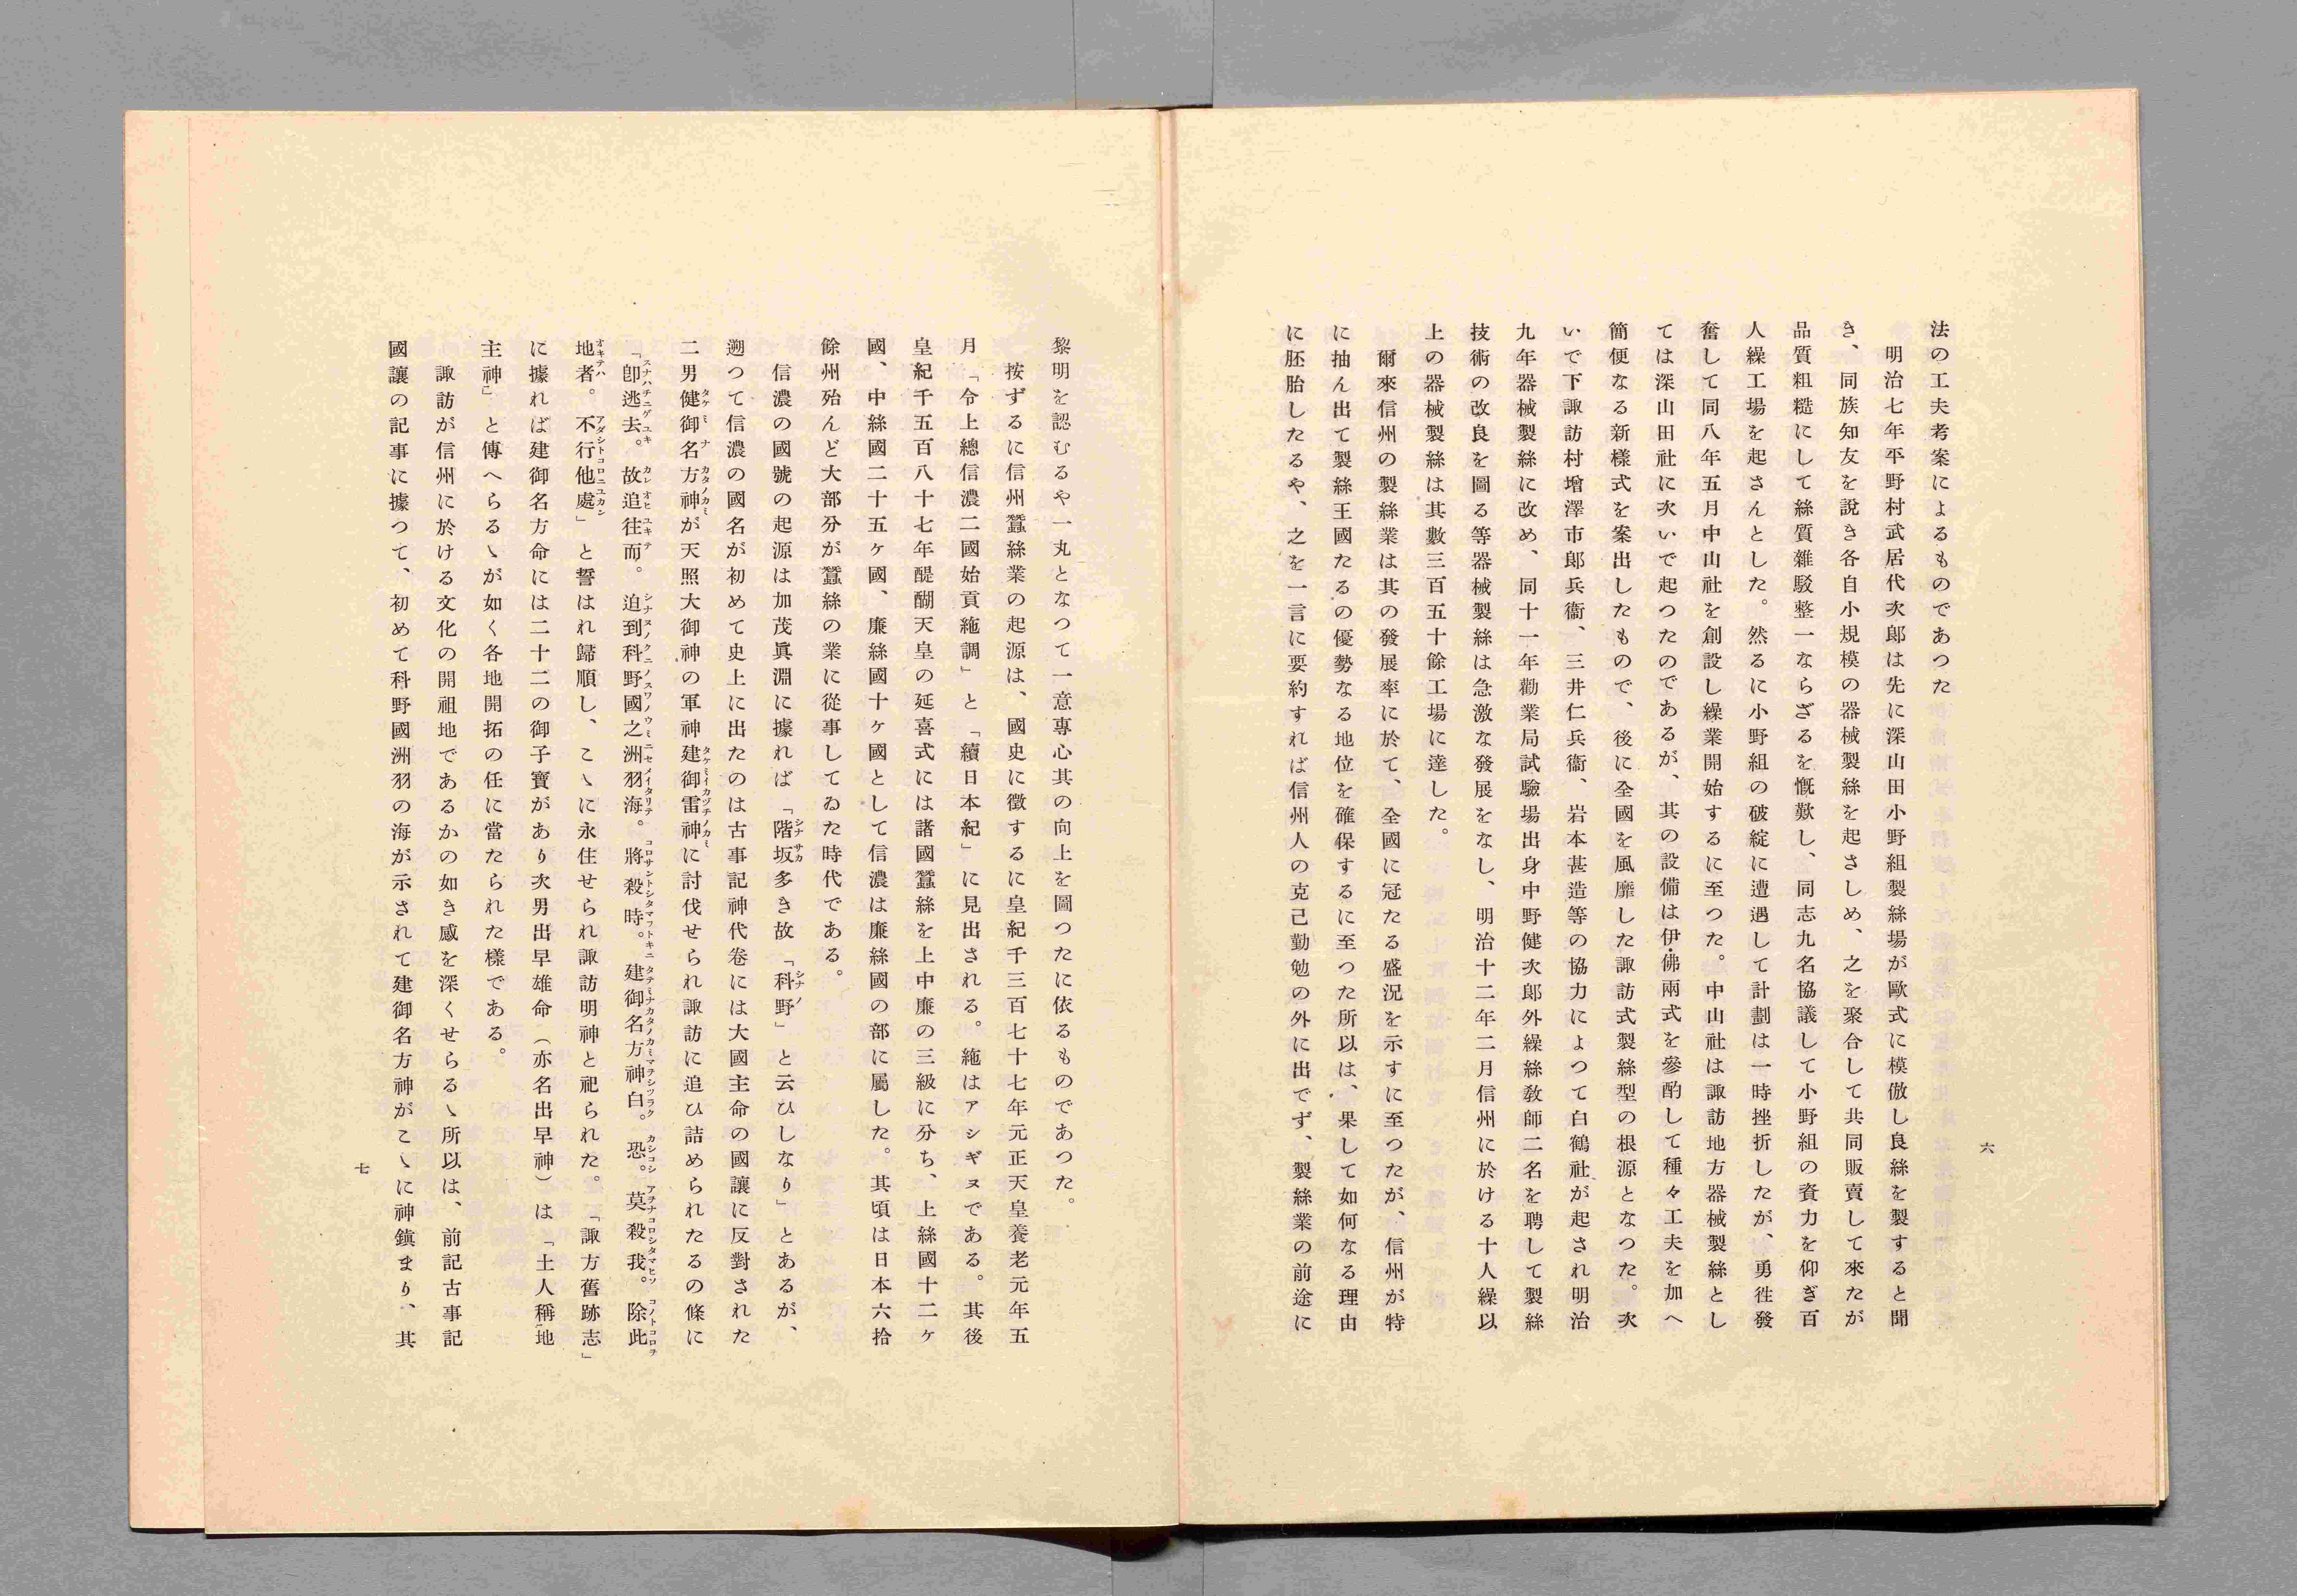 六
法の工夫考案によるものであつた
明治七年平野村武居代次郎は先に深山田小野組製絲場が歐式に模倣し良絲を製すると聞
き、同族知友を說き各自小規模の器械製絲を起さしめ、之を聚合して共同販賣して來たが
品質粗糙にして絲質雜駁整一ならざるを慨歎し、同志九名協議して小野組の資力を仰ぎ百
人繰工場を起さんとした。然るに小野組の破綻に遭遇して計劃は一時挫折したが、勇徃發
奮して同八年五月中山社を創設し繰業開始するに至つた。中山社は諏訪地方器械製絲とし
ては深山田社に次いで起つたのであるが、其の設備は伊・佛兩式を參酌して種々工夫を加へ
簡便なる新樣式を案出したもので、後に全國を風靡した諏訪式製絲型の根源となつた。次
いで下諏訪村增澤市郎兵衞、三井仁兵衞、岩本甚造等の協力によつて白鶴社が起され明治
九年器械製絲に改め、同十一年勸業局試驗場出身中野健次郎外繰絲敎師二名を聘して製絲
技術の改良を圖る等器械製絲は急激な發展をなし、明治十二年二月信州に於ける十人繰以
上の器械製絲は其數三百五十餘工場に達した。
爾來信州の製絲業は其の發展率に於て、全國に冠たる盛況を示すに至つたが、信州が特
に抽ん出て製絲王國たるの優勢なる地位を確保するに至つた所以は、果して如何なる理由
に胚胎したるや、之を一言に要約すれば信州人の克己勤勉の外に出でず、製絲業の前途に
黎明を認むるや一丸となつて一意專心其の向上を圖つたに依るものであつた。
按ずるに信州蠶絲業の起源は、國史に徵するに皇紀千三百七十七年元正天皇養老元年五
月「令上總信濃二國始貢絁調」と「續日本紀」に見出される。絁はアシギヌである。其後
皇紀千五百八十七年醍醐天皇の延喜式には諸國蠶絲を上中廉の三級に分ち、上絲國十二ヶ
國、中絲國二十五ヶ國、廉絲國十ヶ國として信濃は廉絲國の部に屬した。其頃は日本六拾
餘州殆んど大部分が蠶絲の業に從事してゐた時代である。
信濃の國號の起源は加茂眞淵に據れば「階坂多き故「科野」と云ひしなり」とあるが、
遡つて信濃の國名が初めて史上に出たのは古事記神代卷には大國主命の國讓に反對された
二男健御名方神が天照大御神の軍神建御雷神に討伐せられ諏訪に追ひ詰められたるの條に
「卽逃去。故追往而。迫到科野國之洲羽海。將殺時。建御名方神白。恐。莫殺我。除此
地者。不行他處」と誓はれ歸順し、こゝに永住せられ諏訪明神と祀られた。「諏方舊跡志」
に據れば建御名方命には二十二の御子寳があり次男出早雄命（亦名出早神）は「土人稱地
主神」と傳へらるゝが如く各地開拓の任に當たられた樣である。
諏訪が信州に於ける文化の開祖地であるかの如き感を深くせらるゝ所以は、前記古事記
國讓の記事に據つて、初めて科野國洲羽の海が示されて建御名方神がこゝに神鎭まり、其
七